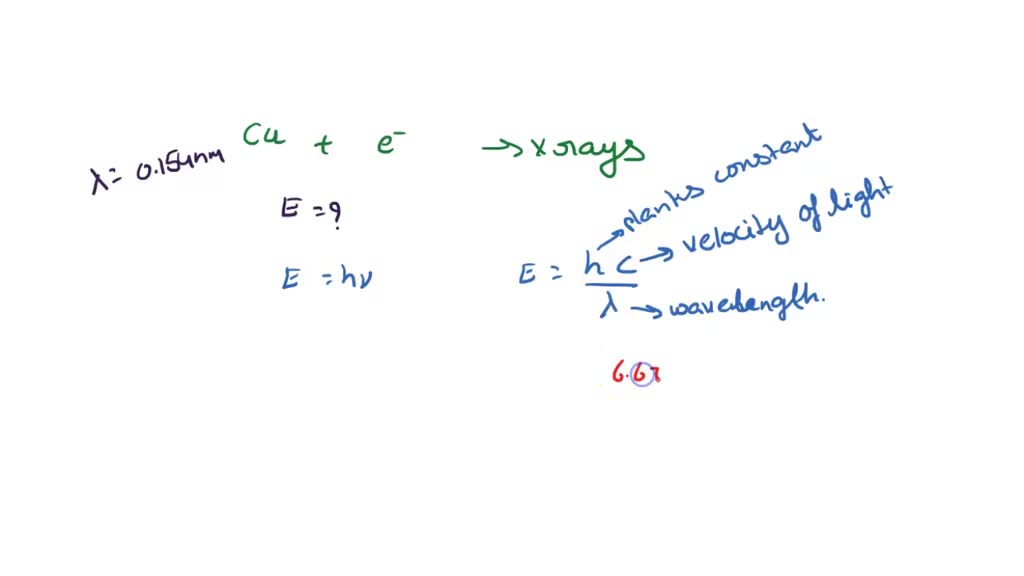 λ = 0.154nm Cu + e⁻ → x rays
E = ?
E = hν
E = hc/λ
h → planks constant
c → velocity of light
λ → wavelength.
6.6